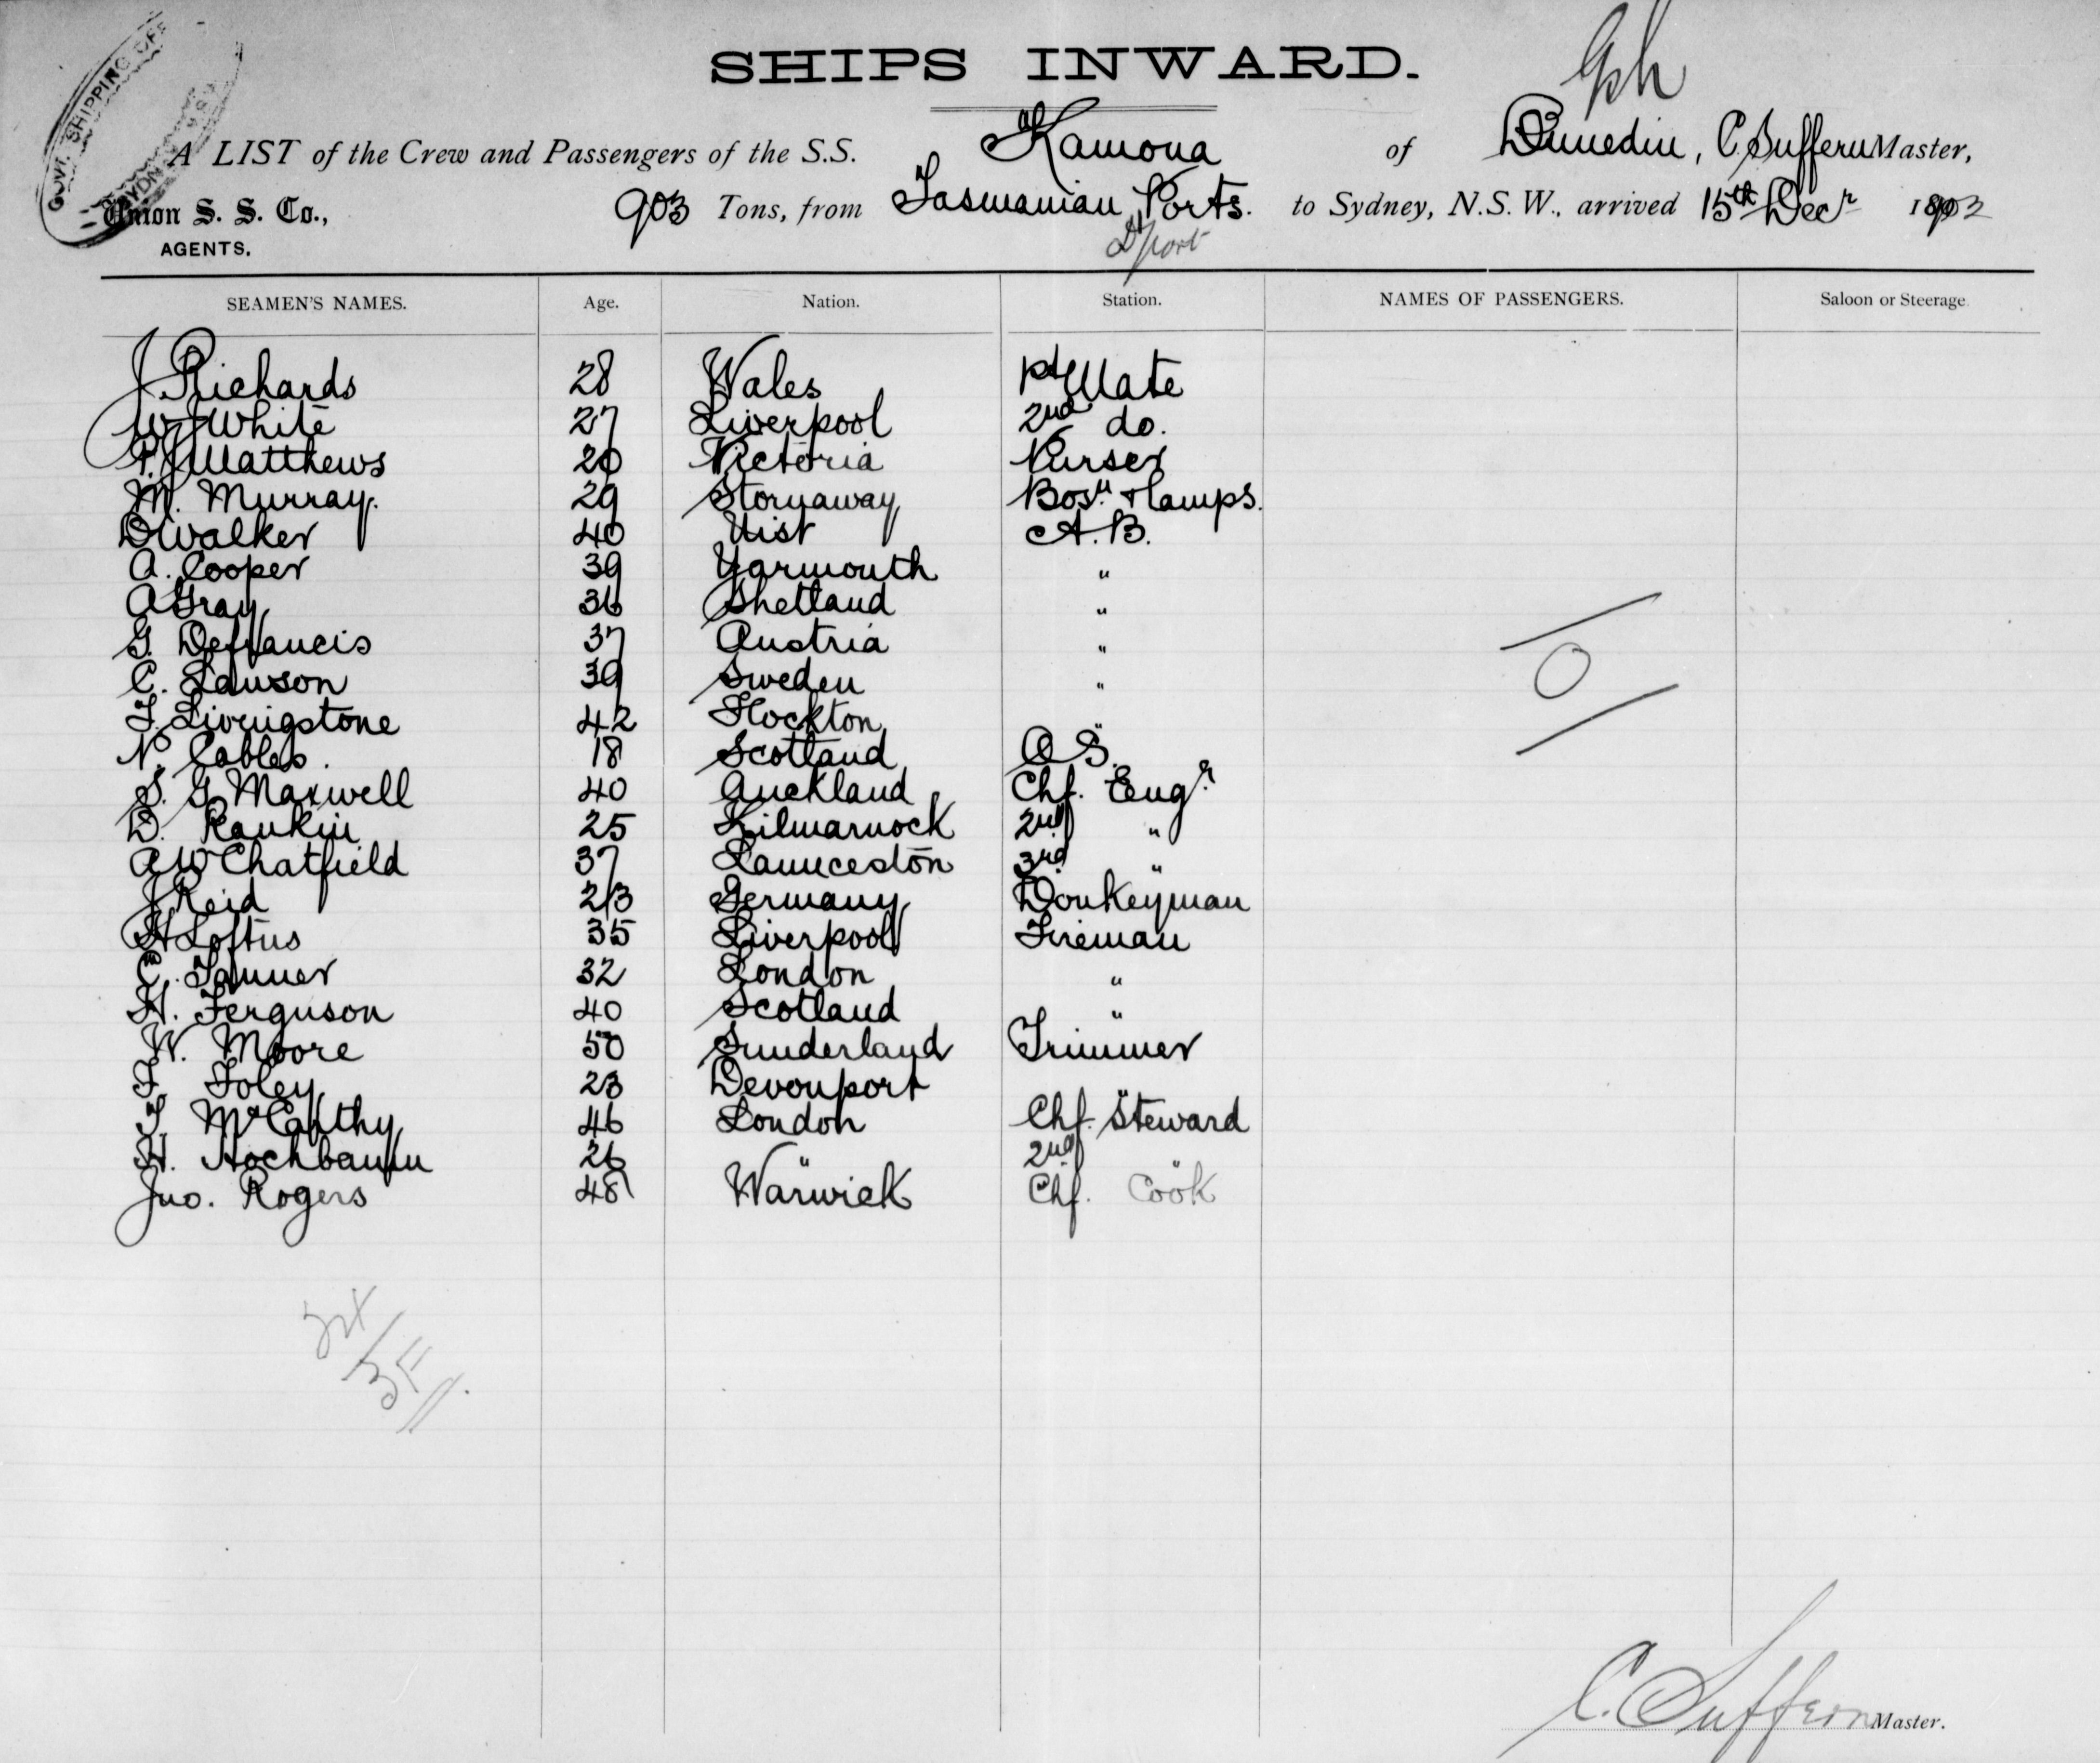 GOVT. SHIPPING OFF
SYDNEY
SHIPS INWARD.
A LIST of the Crew and Passengers of the S.S. Kamona of Dunedin, C. Suffern Master,
Union S. S. Co., 903 Tons, from Tasmanian Ports. to Sydney, N.S.W., arrived 15th Decr 1903
AGENTS. D'port
SEAMEN'S NAMES. Age. Nation. Station. NAMES OF PASSENGERS. Saloon or Steerage
J Richards 28 Wales 1st Mate
W J White 27 Liverpool 2nd do.
P. J Matthews 20 Victoria Purser
M. Murray. 29 Stornaway Bosn & Lamps.
D Walker 40 Uist A.B.
A. Cooper 39 Yarmouth "
A Gray 36 Shetland "
G. Defrancis 37 Austria "
C. Lawson 39 Sweden "
T. Livingstone 42 Flockton "
N. Cables. 18 Scotland O S.
S. G. Maxwell 40 Auckland Chf. Engr
D. Rankin 25 Kilmarnock 2nd "
A W Chatfield 37 Launceston 3rd "
J Reid 23 Germany Donkeyman
H Loftus 35 Liverpool Fireman
C. Tanner 32 London "
H. Ferguson 40 Scotland "
W. Moore 50 Sunderland Trimmer
F. Foley 23 Devonport "
T McCarthy 46 London Chf. Steward
H. Hochbaum 26 " 2nd "
Jno. Rogers 48 Warwick Chf. Cook
0
C. Suffern Master.